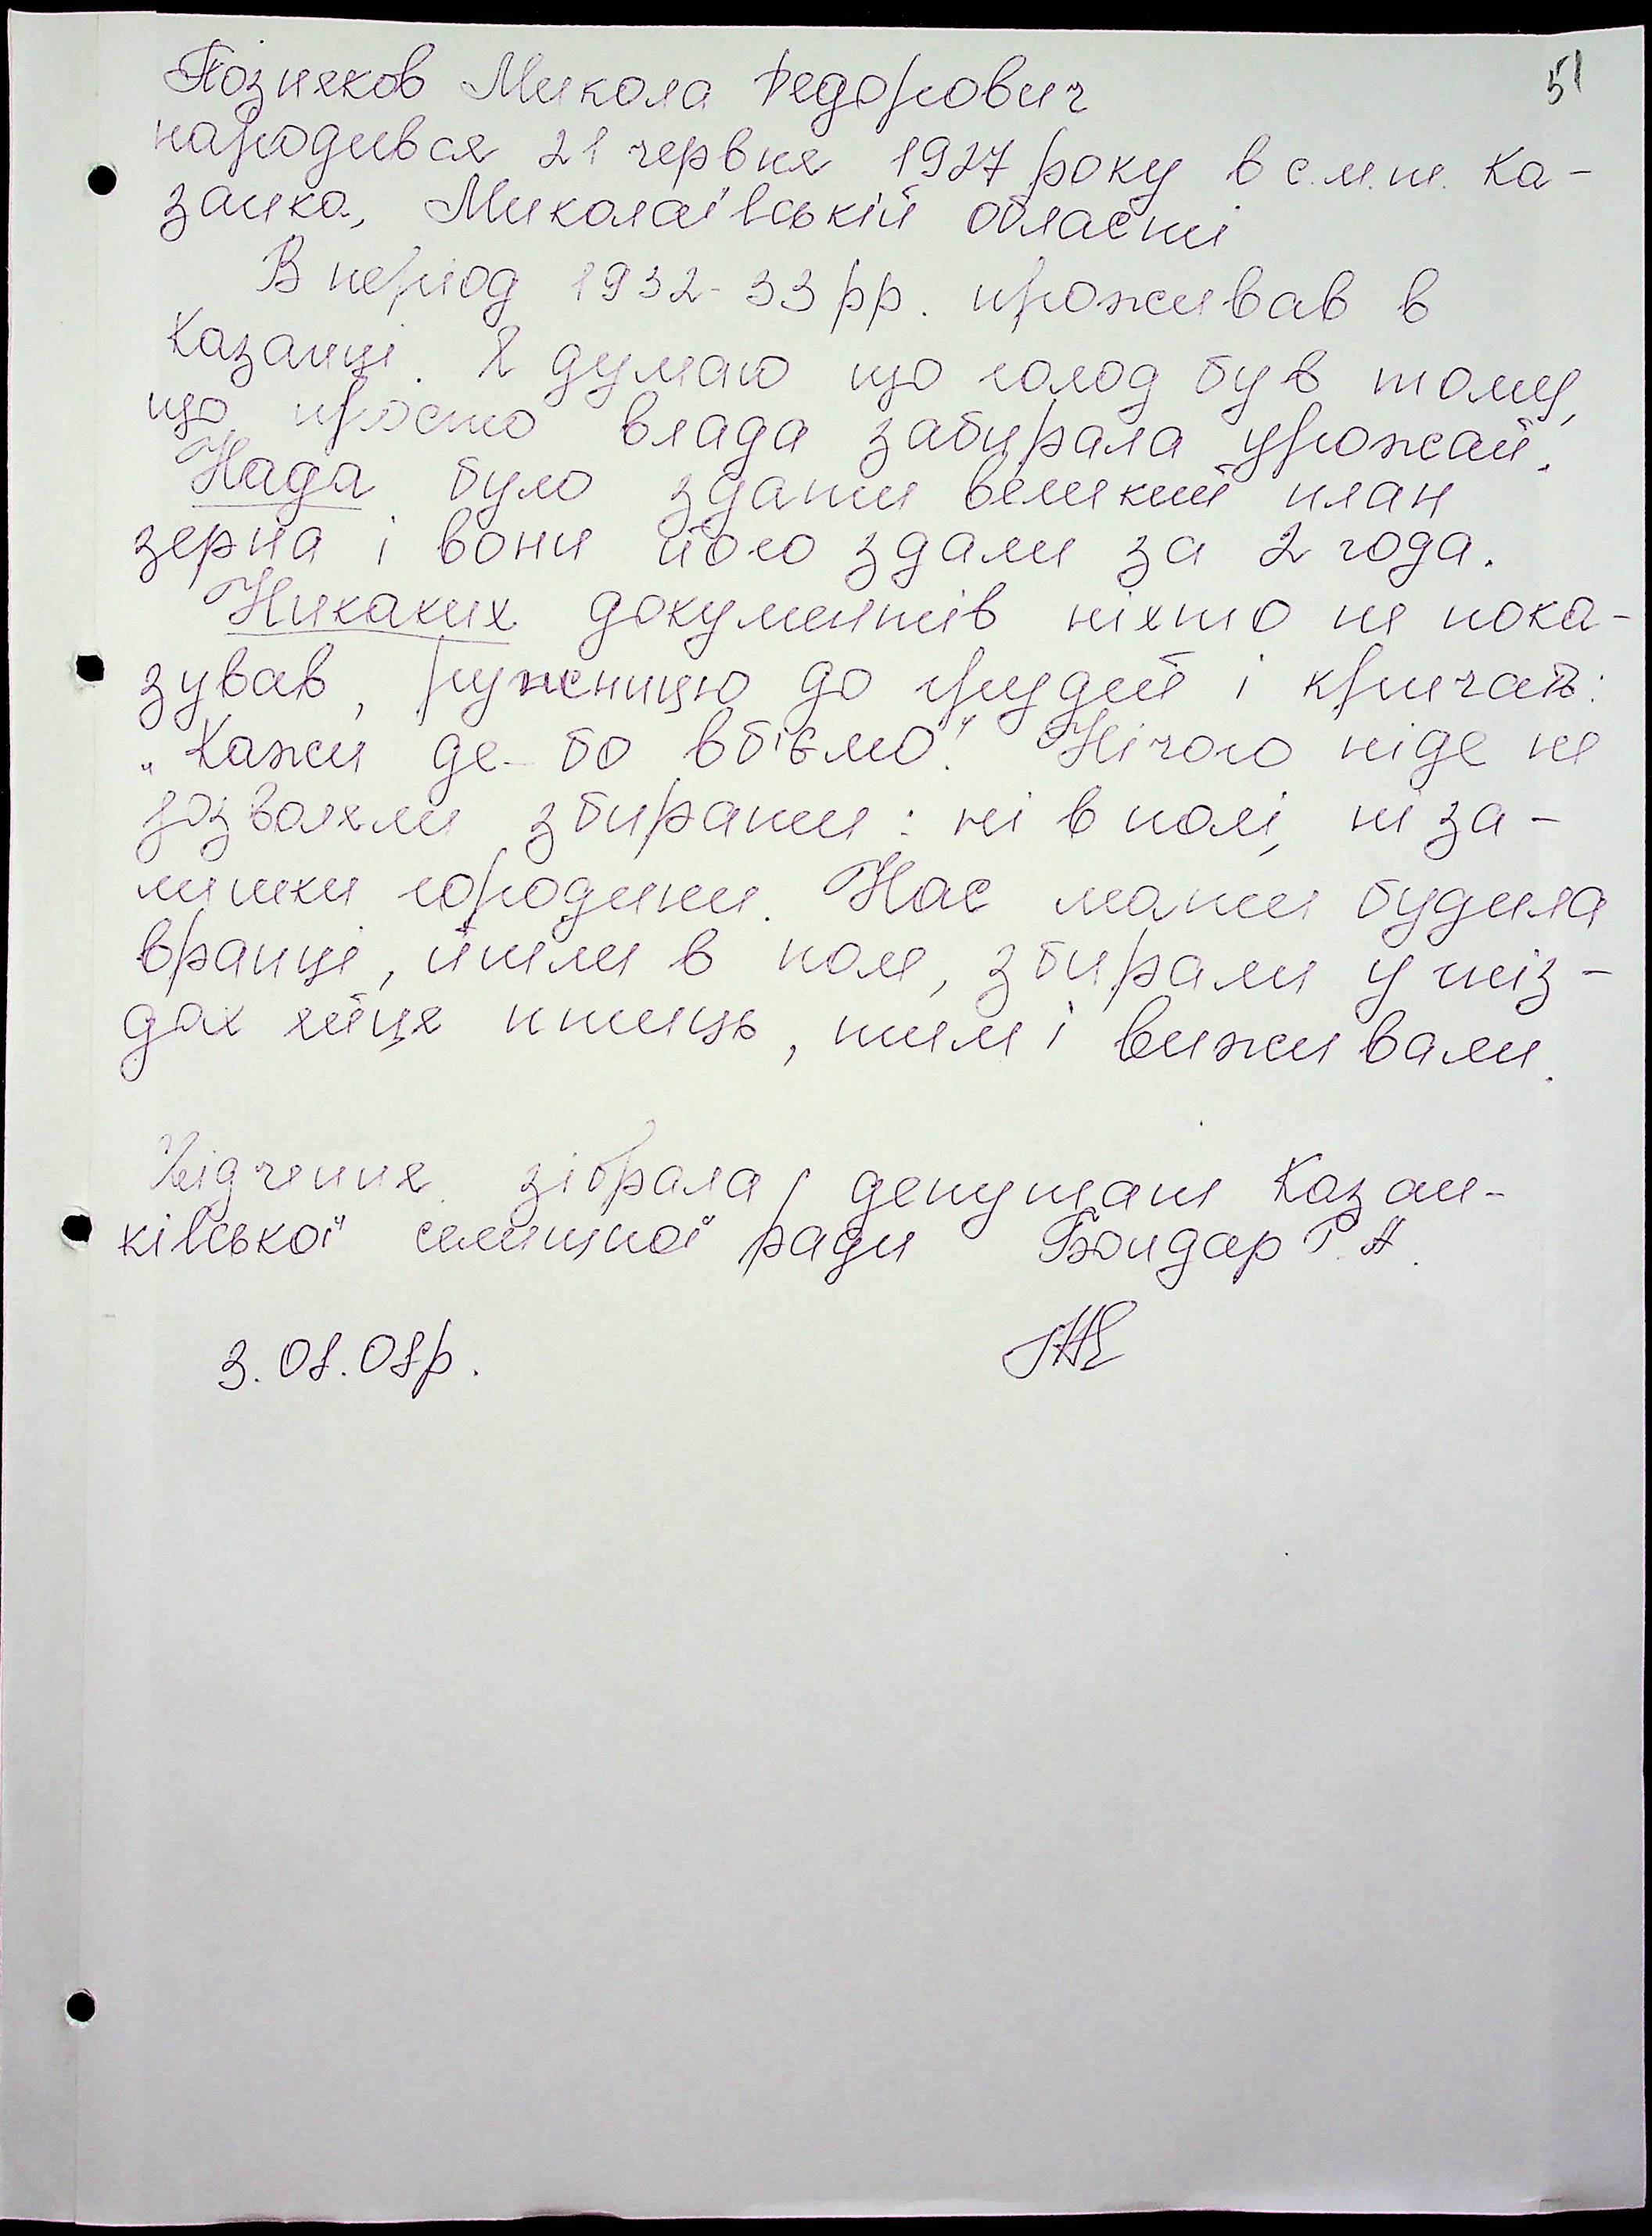 51
Позняков Микола Федорович
народився 21 червня 1927 року в с.м.т. Ка-
занка, Миколаївській області
В період 1932-33 рр. проживав в
Казанці. Я думаю що голод був тому,
що просто влада забирала урожай.
Нада було здати великий план
зерна і вони його здали за 2 года.
Никаких документів ніхто не пока-
зував, ружницю до грудей і кричать:
"Кажи де - бо вб'ємо". Нічого ніде не
дозволяли збирати: ні в полі, ні за-
лишки городини. Нас мати будила
вранці, йшли в поле, збирали у гніз-
дах яйця птиць, тим і виживали.
Свідчення зібрала депутат Казан-
ківської селищної ради Бондар Г.А.
3.08.08р.